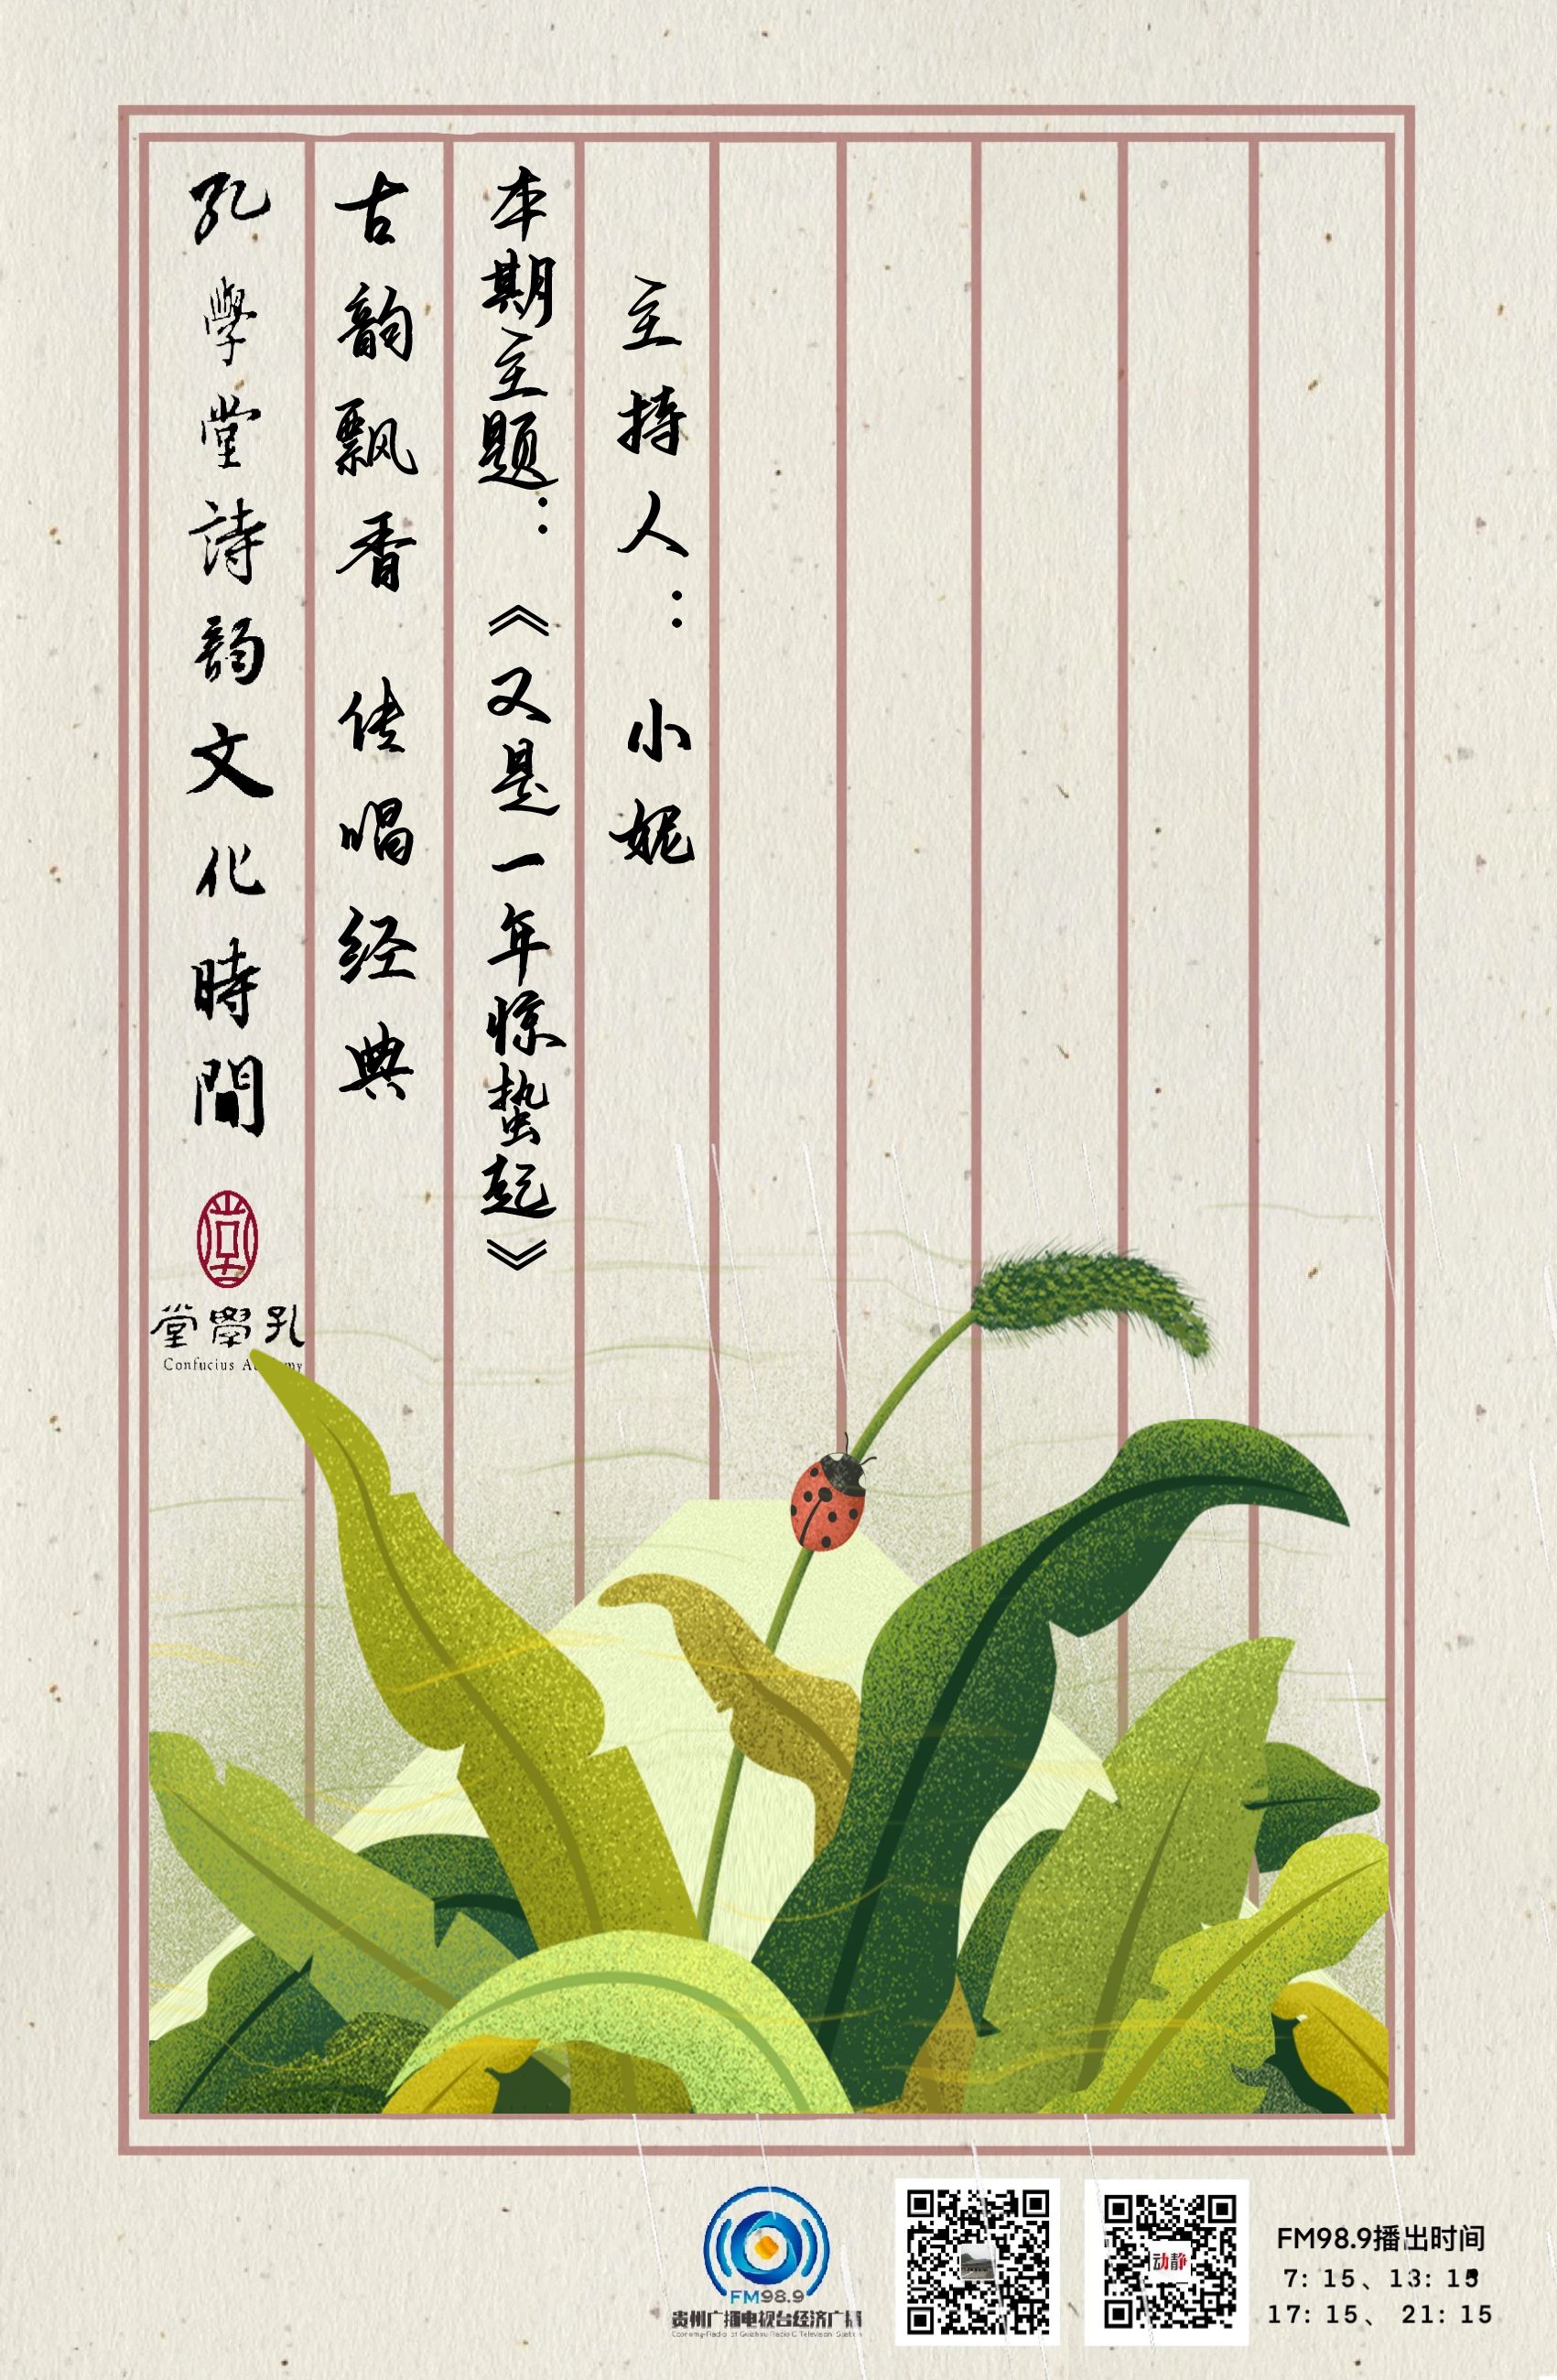 孔學堂詩韵文化時間
古韵飘香 传唱经典
本期主题：《又是一年惊蛰起》
主持人：小妮
堂學孔
Confucius A my
FM98.9
贵州广播电视台经济广播
动静
FM98.9播出时间
7: 15、13: 15
17: 15、 21: 15